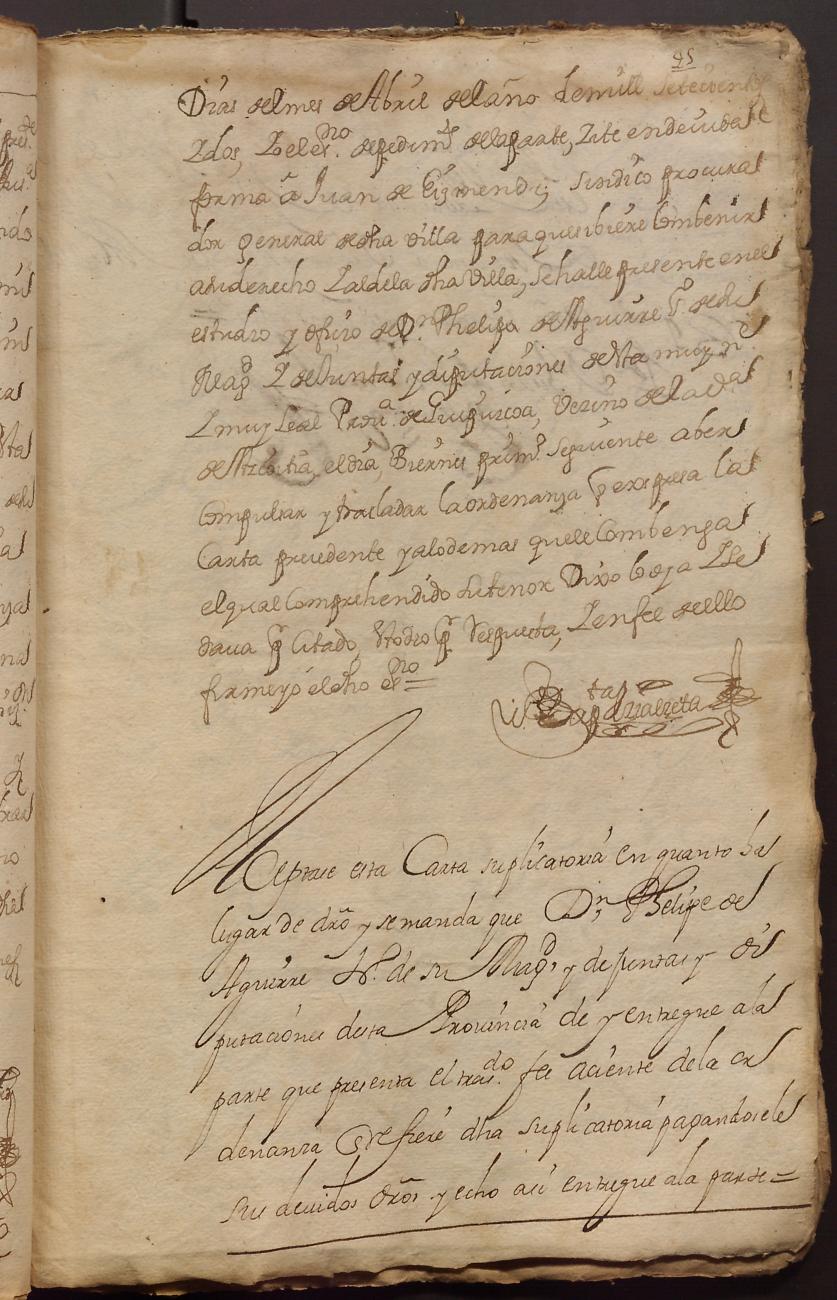 45
Dias del mes de Abril del año de mill setecient
Y dos, Yo el esno. de pedimto de la parte, Zite en deuida
forma â Juan de Eizmendi, sindico procura
dor general de dha villa para que si biere combenir
a su derecho Y al de la dha Villa, se halle presente en el
estudio y ofizio de Dn Phelipe de Aguirre sº. de su
Magd Y de Juntas y diputaciones de esta muy ne
Y muy Leal Prouª. de Guipuzcoa, Vezino de la
de el dia, Biernes primº seguiente a ber
Compulsar y trasladar la ordenanza q expresa la
Carta precedente y a lo demas que le Combenga
el qual Comprehendido su tenor Dixo lo oya Y se
daua pr Citado, esto dio pr Respuesta, Y en fee de ello
firme yo el dho esno =
Azeptase esta Carta suplicatoria en quanto ha
lugar de dro y se manda que Dn, Phelipe de
Aguirre sº. de su Magd, y de juntas y dis
putaciones desta Prouincia de y entregue a la
parte que presenta el trasdo. fee aciente de la or
denanza q refiere dha suplicatoria pagandosele
sus deuidos dros y echo asi entregue a la parte =